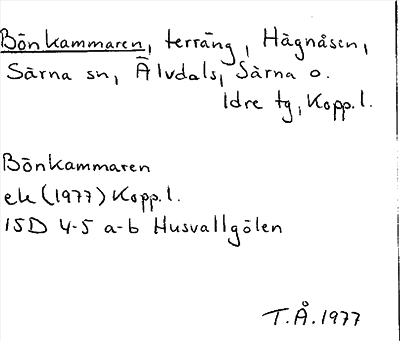 Bönkammaren, terräng, Hägnåsen,
Särna sn, Älvdals, Särna o.
Idre tg, Kopp. l.
Bönkammaren
ek (1977) Kopp. l.
15D 4-5 a-b Husvallgölen
T.Å. 1977